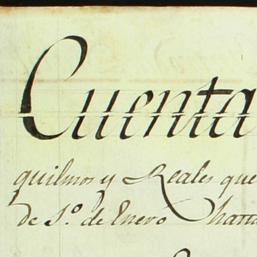 Cuenta
quilmos y Reales que
de 1º. de Enero